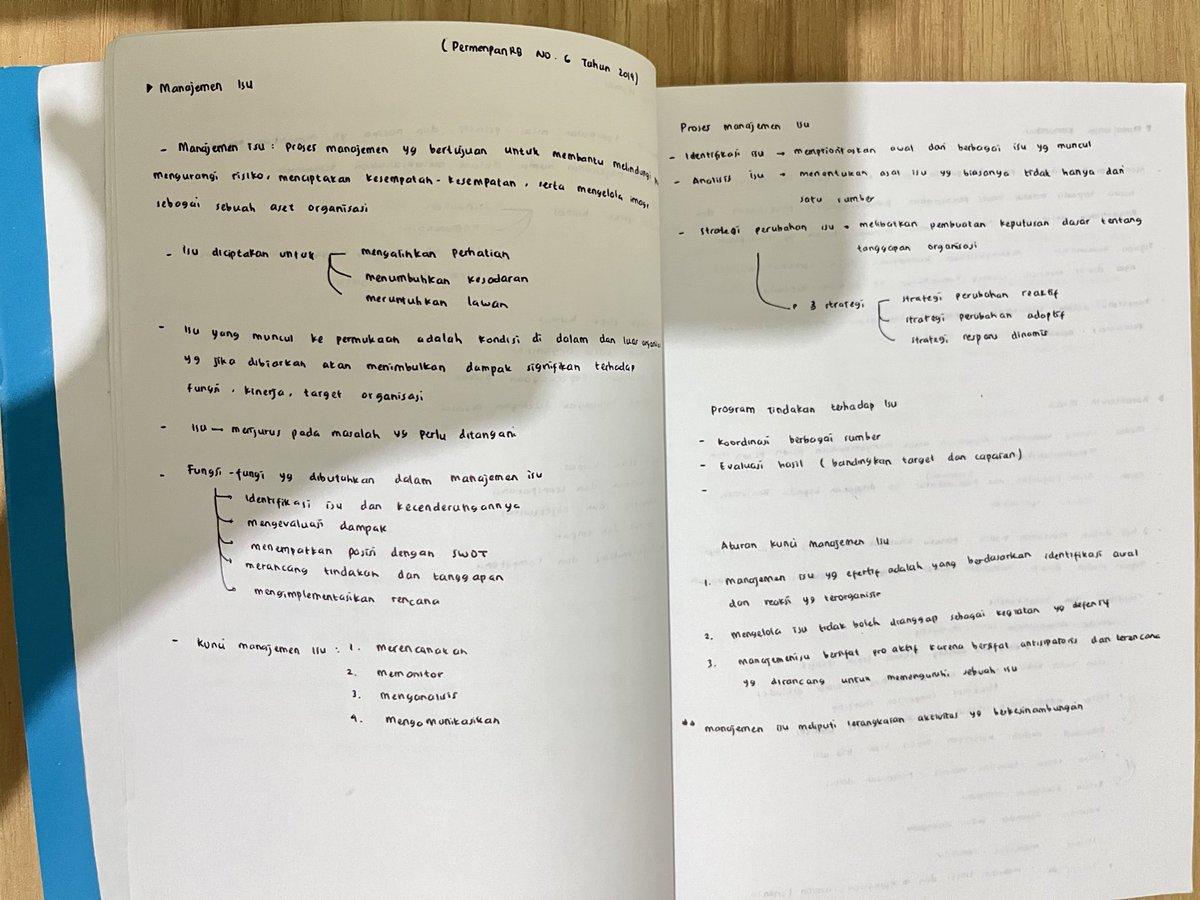 (PermenpanRB No. 6 Tahun 2014)
▶ Manajemen Isu
- Manajemen isu : Proses manajemen yg bertujuan untuk membantu melindungi
mengurangi risiko, menciptakan kesempatan-kesempatan, serta mengelola image
sebagai sebuah aset organisasi
- Isu diciptakan untuk mengalihkan perhatian
menumbuhkan kesadaran
meruntuhkan lawan
- Isu yang muncul ke permukaan adalah kondisi di dalam dan luar organisasi
yg jika dibiarkan akan menimbulkan dampak signifikan terhadap
fungsi, kinerja, target organisasi
- Isu — menjurus pada masalah yg perlu ditangani
- Fungsi-fungi yg dibutuhkan dalam manajemen isu
identifikasi isu dan kecenderungannya
mengevaluasi dampak
menempatkan posisi dengan SWOT
merancang tindakan dan tanggapan
mengimplementasikan rencana
- Kunci manajemen isu : 1. merencanakan
2. memonitor
3. menganalisis
4. mengomunikasikan
Proses manajemen isu
- Identifikasi isu → memprioritaskan awal dari berbagai isu yg muncul
- Analisis isu → menentukan asal isu yg biasanya tidak hanya dari
satu sumber
- Strategi perubahan isu → melibatkan pembuatan keputusan dasar tentang
tanggapan organisasi
3 strategi strategi perubahan reaktif
strategi perubahan adaptif
strategi respons dinamis
Program tindakan terhadap isu
- Koordinasi berbagai sumber
- Evaluasi hasil (bandingkan target dan caparan)
-
Aturan kunci manajemen isu
1. manajemen isu yg efektif adalah yang berdasarkan identifikasi awal
dan reaksi yg terorganisir
2. mengelola isu tidak boleh dianggap sebagai kegiatan yg defensif
3. manajemen isu bersifat pro aktif karena bersifat antisipatoris dan terencana
yg dirancang untuk memengaruhi sebuah isu
** manajemen isu meliputi serangkaian aktivitas yg berkesinambungan